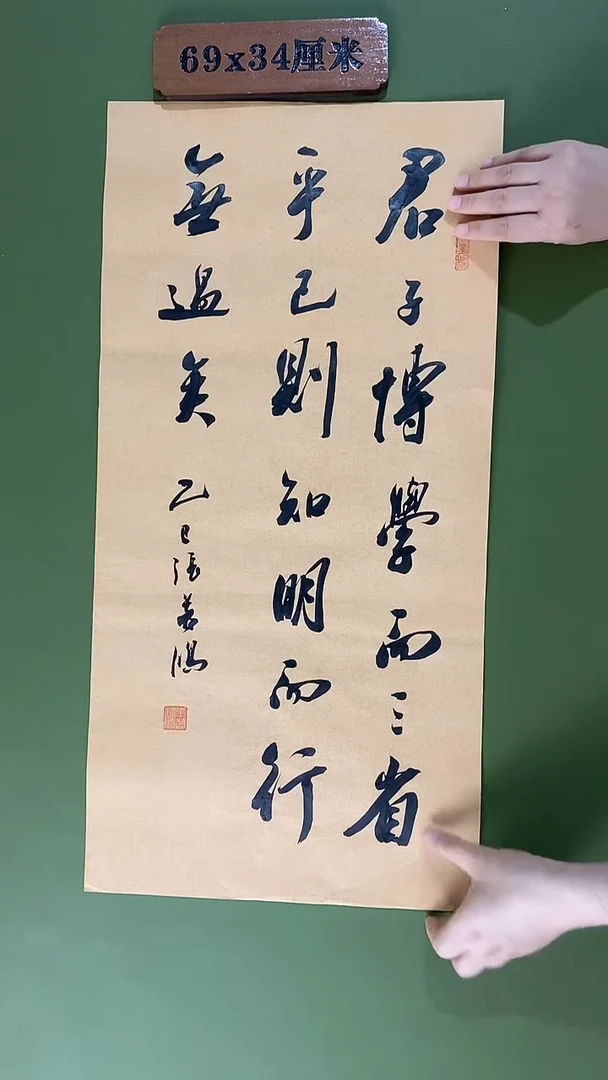 69x34厘米
君子博學而三省
乎己則知明而行
無過矣
乙巳張善鴻